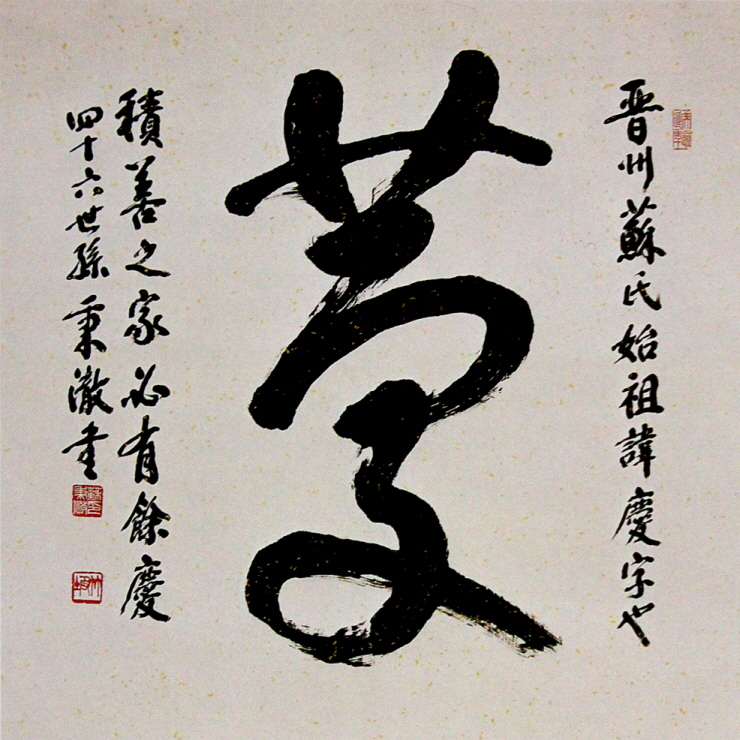 晋州蘇氏始祖諱慶字也
慶
積善之家必有餘慶
四十六世孫秉澈書